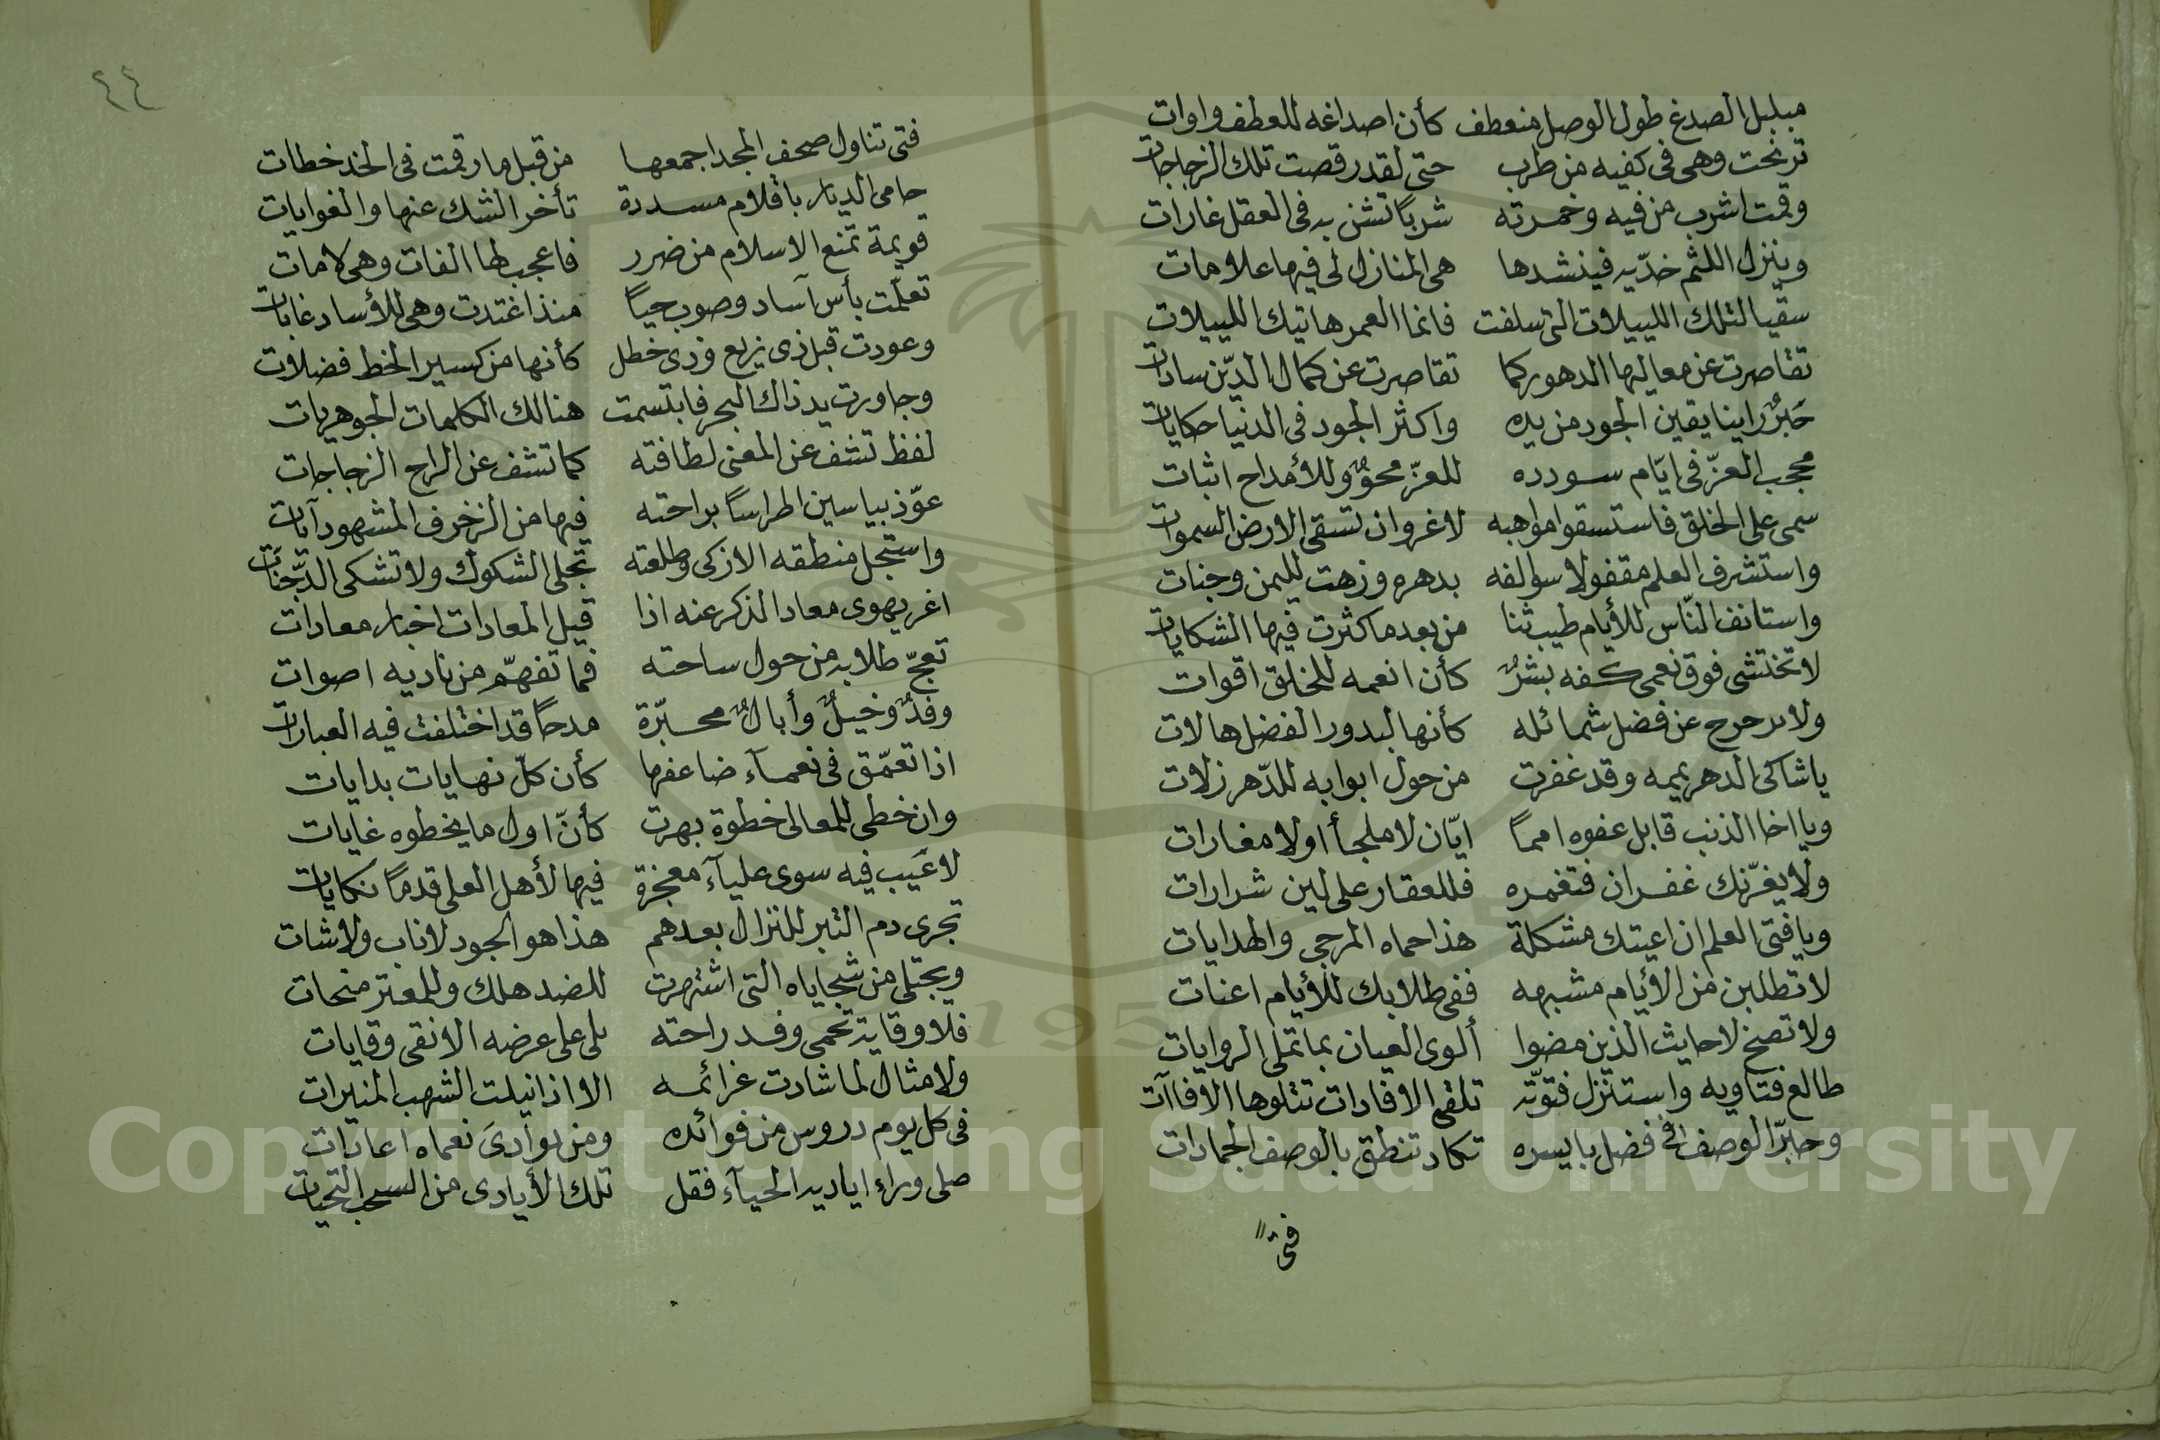 مبلبل الصدغ طول الوصل منعطف كأن اصداغه للعطف واوات
ترنحت وهى فى كفيه من طرب حتى لقد رقصت تلك الزجاجات
وقمت اشرب من فيه وخمرته شربًا تشن به فى العقل غارات
وينزل اللثم خدّيه فينشدها هى المنازل لى فيها علامات
سقيا لتلك اللييلات التى سلفت فانما العمر هاتيك اللييلات
تقاصرت عن معاليها الدهور كما تقاصرت عن كمال الدّين سادات
حَبرٌ راينا يقين الجود من يده واكثر الجود فى الدنيا حكايات
محجب العزّ فى ايّام سودده للعزّ محوٌ وللأمداح اثبات
سمى على الخلق فاستسقوا مواهبه لا غرو ان تسقى الارض السموات
واستشرف العلم مقفولا سوالفه بدهره وزهت لليمن وجنات
واستانف النّاس للأيام طيب ثنا من بعد ما كثرت فيها الشكايات
لا تختشى فوق نعمى كفه بشرٌ كأن انعمه للخلق اقوات
ولا برحرح عن فضل شمائله كأنها لبدور الفضل هالات
يا شاكى الدهر يممه وقد غفرت من حول ابوابه للدّهر زلات
ويا اخا الذنب قابل عفوه امماً ايّان لا ملجأ اولا مغارات
ولا يغرّنك غفران فتغمره فللعقار على لين شرارات
ويا فتى العلم ان اعيتك مشكلة هذا حماه المرجى والهدايات
لا تطلبن من الأيّام مشبهه ففى طلابك للأيام اعنات
ولا تصخ لاحايث الذين مضوا ألوى العيان بما تملى الروايات
طالع فتاويه واستنزل فتوّته تلقى الافادات تتلوها الافاآت
وحابرّ الوصف فى فضل بايسره تكاد تنطق بالوصف الجمادات
فتى
٤٤
فتى تناول صحف المجد اجمعها من قبل ما رقمت فى الخد خطات
حامى الديار باقلام مسددة تأخر الشك عنها والغوايات
قويمة تمنع الاسلام من ضرر فاعجب لها الفات وهى لامات
تعلّمت بأس آساد وصوب حيًا منذ اغتدت وهى للأساد غابات
وعودت قبل ذى يزيع وذى خطل كأنها من كسير الخط فضلات
وجاورت يد ذاك البحر فابتسمت هنالك الكلمات الجوهريات
لفظ تشف عن المعنى لطافته كما تشف عن الراح الزجاجات
عوّذ بياسين اطراسًا براحته فيها من الزخرف المشهود آيات
واستجل منطقه الازكى وطلعته تجلى الشكوك ولا تشكى الدّجنات
اغر يهوى معاد الذكر عنه اذا قيل المعادات اخبار معادات
تعجّ طلابه من حول ساحته فما تفهّم من ناديه اصوات
وفدٌ وخيلٌ وأبالٌ محبّرة مدحًا قد اختلفت فيه العبارات
اذا تعمّق فى نعمآء ضاعفها كأن كلّ نهايات بدايات
وان خطى للمعالى خطوة بهرت كأنّ اول ما يخطوه غايات
لا عَيب فيه سوى عليآء معجزة فيها لأهل العلى قدمًا نكايات
تجرى دم التبر للنزال بعدهم هذا هو الجود لا ناب ولا شات
ويجتلى من سجاياه التى اشتهرت للضد هلك وللمعتز منحات
فلا وقاية تحمى وفد راحته بلى على عرضه الانقى وقايات
ولا مثال لما شادت عزائمه الا اذا نيلت الشهب المنيرات
فى كل يوم دروس من فوائده ومن بوادىَ نعماه اعادات
صلى وراء اياديه الحيآء فقل تلك الأيادى من السحب التحيات